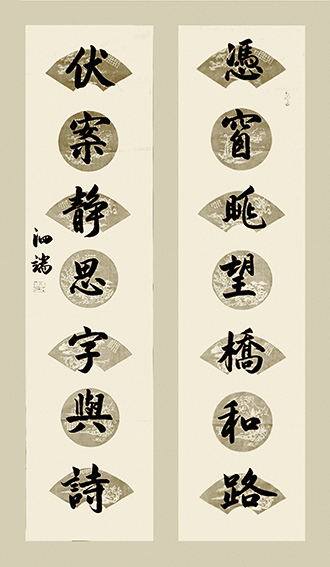 憑窗眺望橋和路
伏案靜思字與詩
泗端